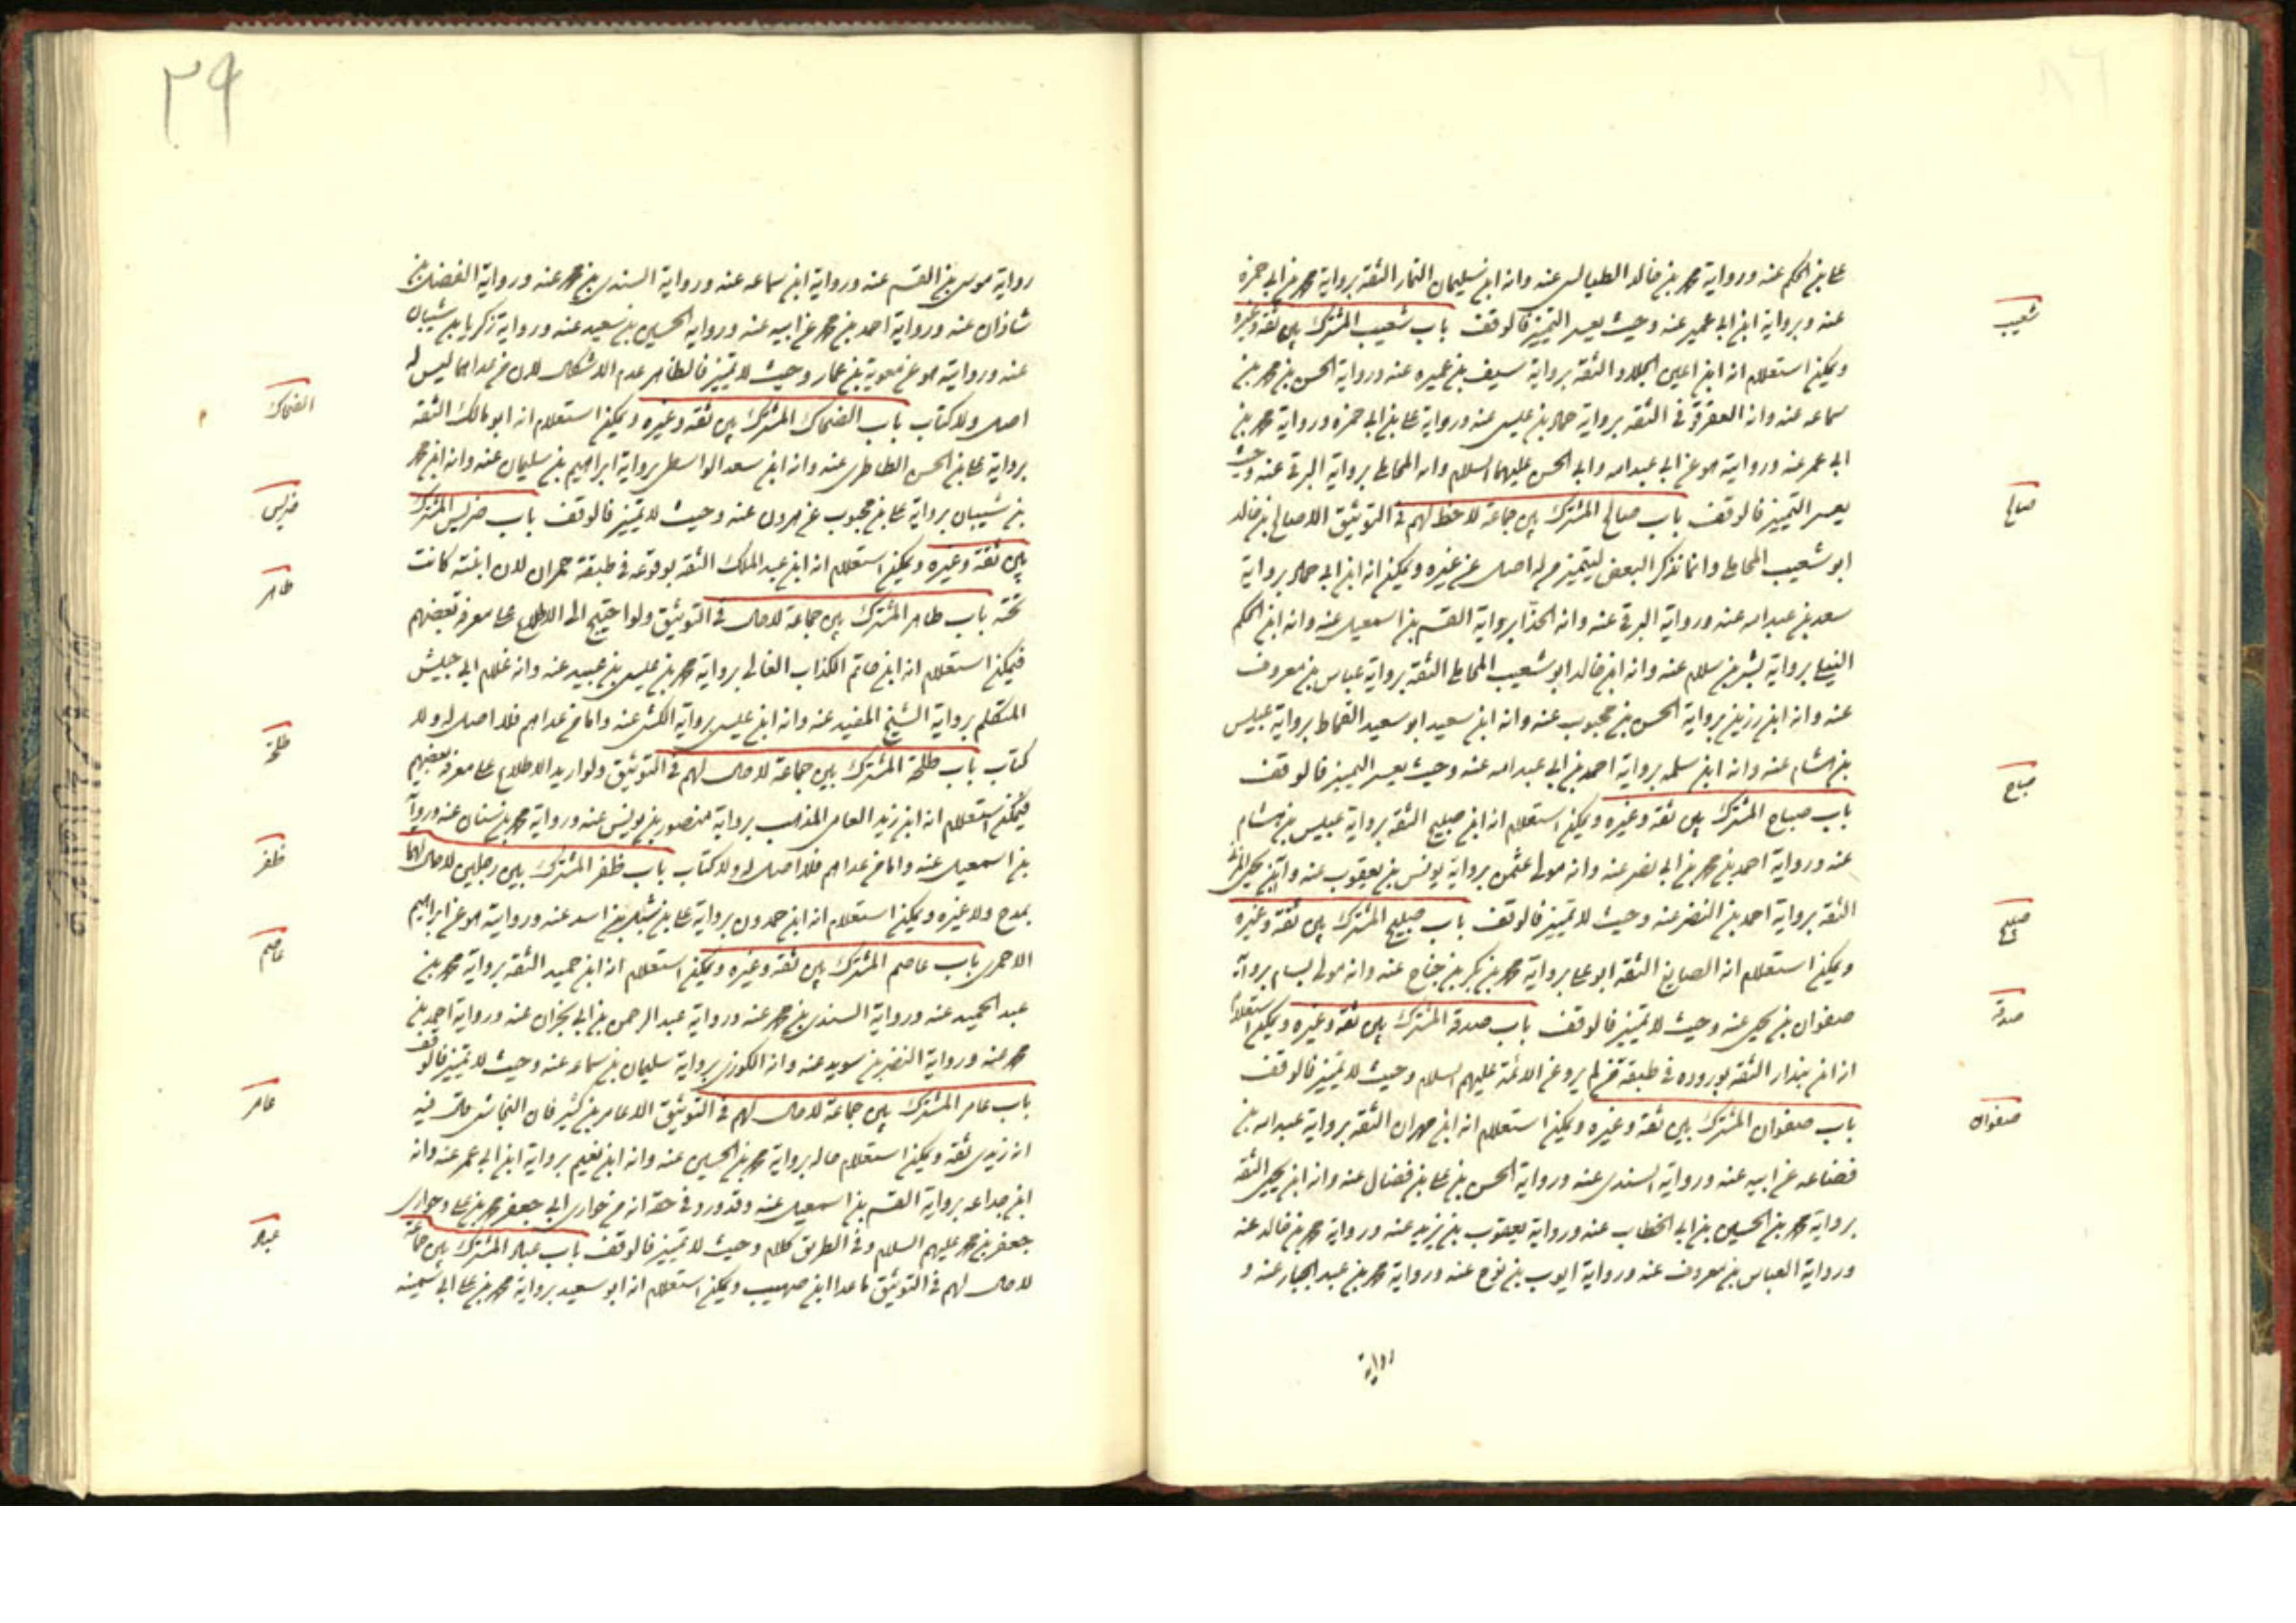 علي بن الحكم عنه ورواية محمد بن خالد الطيالسي عنه وانه ابن سليمان التمار الثقة برواية محمد بن ابي حمزه
عنه وبرواية ابن ابي عمير عنه وحيث يعسر التميز فالوقف باب شعيب المشترك بين ثقة وغيره
شعيب
ويمكن استعلام انه ابن اعين الحداد الثقة برواية سيف بن عميره عنه ورواية الحسن بن محمد بن
سماعه عنه وانه العقرقوفي الثقه برواية حماد بن عيسى عنه ورواية علي بن ابي حمزه ورواية محمد بن
ابي عمر عنه وروايته هو عن ابي عبد الله وابي الحسن عليهما السلام وانه المحاملي برواية البرقي عنه وحيث
يعسر التميز فالوقف باب صالح المشترك بين جماعة لاحظ لهم في التوثيق الا صالح بن خالد
صالح
ابو شعيب المحاملي وانما نذكر البعض ليتميز من له اصل عن غيره ويمكن انه ابن ابي حماد برواية
سعد بن عبد الله عنه ورواية البرقي عنه وانه الحذا برواية القسم بن اسمعيل عنه وانه ابن الحكم
النيلي برواية بشر بن سلام عنه وانه ابن خالد ابو شعيب المحاملي الثقة برواية عباس بن معروف
عنه وانه ابن رزين برواية الحسن بن محبوب عنه وانه ابن سعيد ابو سعيد القماط برواية عبيس
بن هشام عنه وانه ابن سلمه برواية احمد بن ابي عبد الله عنه وحيث يعسر التميز فالوقف
باب صباح المشترك بين ثقة وغيره ويمكن استعلام انه ابن صبيح الثقة برواية عبيس بن هشام
صباح
عنه ورواية احمد بن محمد بن ابي نصر عنه وانه مولى عثمن برواية يونس بن يعقوب عنه وابن يحيى المزني
الثقه برواية احمد بن النضر عنه وحيث لا تميز فالوقف باب صبيح المشترك بين ثقة وغيره
صبيح
ويمكن استعلام انه الصايغ الثقة ابو علي برواية محمد بن بكر بن جناح عنه وانه مولى بسام برواية
صفوان بن يحيى عنه وحيث لا تميز فالوقف باب صدقة المشترك بين ثقة وغيره ويمكن استعلام
صدقة
انه ابن بندار الثقه بوروده في طبقة من لم يرو عن الائمة عليهم السلام وحيث لا تميز فالوقف
باب صفوان المشترك بين ثقة وغيره ويمكن استعلام انه ابن مهران الثقه برواية عبد الله بن
صفوان
قضاعه عن ابيه عنه ورواية السندي عنه ورواية الحسن بن علي بن فضال عنه وانه ابن يحيى الثقه
برواية محمد بن الحسين بن ابي الخطاب عنه ورواية يعقوب بن يزيد عنه ورواية محمد بن خالد عنه
ورواية العباس بن معروف عنه ورواية ايوب بن نوح عنه ورواية محمد بن عبد الجبار عنه و
رواية
٢٩
رواية موسى بن القسم عنه ورواية ابن سماعه عنه ورواية السندي بن محمد عنه ورواية الفضل بن
شاذان عنه ورواية احمد بن محمد عن ابيه عنه ورواية الحسين بن سعيد عنه ورواية زكريا بن شيبان
عنه وروايته هو عن معوية بن عمار وحيث لا تميز فالظاهر عدم الاشكال لان من عداهما ليس له
اصل ولا كتاب باب الضحاك المشترك بين ثقة وغيره ويمكن استعلام انه ابو مالك الثقه
الضحاك
برواية علي بن الحسن الطاطري عنه وانه ابن سعد الواسطي برواية ابراهيم بن سليمان عنه وانه ابن محمد
بن شيبان برواية علي بن محبوب عن هرون عنه وحيث لا تميز فالوقف باب ضريس المشترك
ضريس
بين ثقة وغيره ويمكن استعلام انه ابن عبد الملك الثقه بوقوعه في طبقة حمران لان ابنته كانت
تحته باب طاهر المشترك بين جماعة لا حال في التوثيق ولو احتيج الى الاطلاع على معرفة بعضهم
طاهر
فيمكن استعلام انه ابن حاتم الكذاب الغالي برواية محمد بن عيسى بن عبيد عنه وانه غلام ابي جيش
المتكلم برواية الشيخ المفيد عنه وانه ابن عيسى برواية الكشي عنه واما من عداهم فلا اصل له ولا
كتاب باب طلحة المشترك بين جماعة لا حال لهم في التوثيق ولو اريد الاطلاع على معرفة بعضهم
طلحة
فيمكن استعلام انه ابن زيد العامي المذهب برواية منصور بن يونس عنه ورواية محمد بن سنان عنه ورواية
بن اسمعيل عنه واما من عداهم فلا اصل له ولا كتاب باب ظفر المشترك بين رجلين لا حال لهما
ظفر
بمدح ولا غيره ويمكن استعلام انه ابن حمدون برواية علي بن شبل بن اسد عنه وروايته هو عن ابراهيم
الاحمري باب عاصم المشترك بين ثقة وغيره ويمكن استعلام انه ابن حميد الثقة برواية محمد بن
عاصم
عبد الحميد عنه ورواية السندي بن محمد عنه ورواية عبد الرحمن بن ابي نجران عنه ورواية احمد بن
محمد عنه ورواية النضر بن سويد عنه وانه الكوزي برواية سليمان بن سماعه عنه وحيث لا تميز فالوقف
باب عامر المشترك بين جماعة لا حال لهم في التوثيق الا عامر بن كثير فان النجاشي قال فيه
عامر
انه زيدي ثقة ويمكن استعلام حاله برواية محمد بن الحسين عنه وانه ابن نعيم برواية ابن ابي عمر عنه وانه
ابن جداعه برواية القسم بن اسمعيل عنه وقد ورد في حقه انه من حواري ابي جعفر محمد بن علي وحواري
جعفر بن محمد عليهم السلام وفي الطريق كلام وحيث لا تميز فالوقف باب عباد المشترك بين جماعة
عباد
لا حال لهم في التوثيق ما عدا ابن صهيب ويمكن استعلام انه ابو سعيد برواية محمد بن علي ابي سمينه